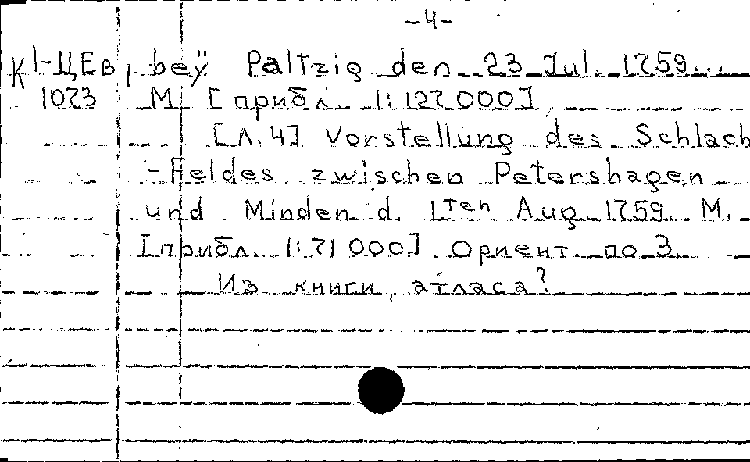 -4-
К1-ЦЕв, beÿ Paltzig den 23 Jul. 1759...
1073 М. [прибл. 1:127 000]
[Л.4] Vorstellung des Schlach
-Feldes zwischen Petershagen
und Minden d. 1ten Aug 1759 M.
[прибл. 1:71 000] Ориент по З
Из книги, атласа?